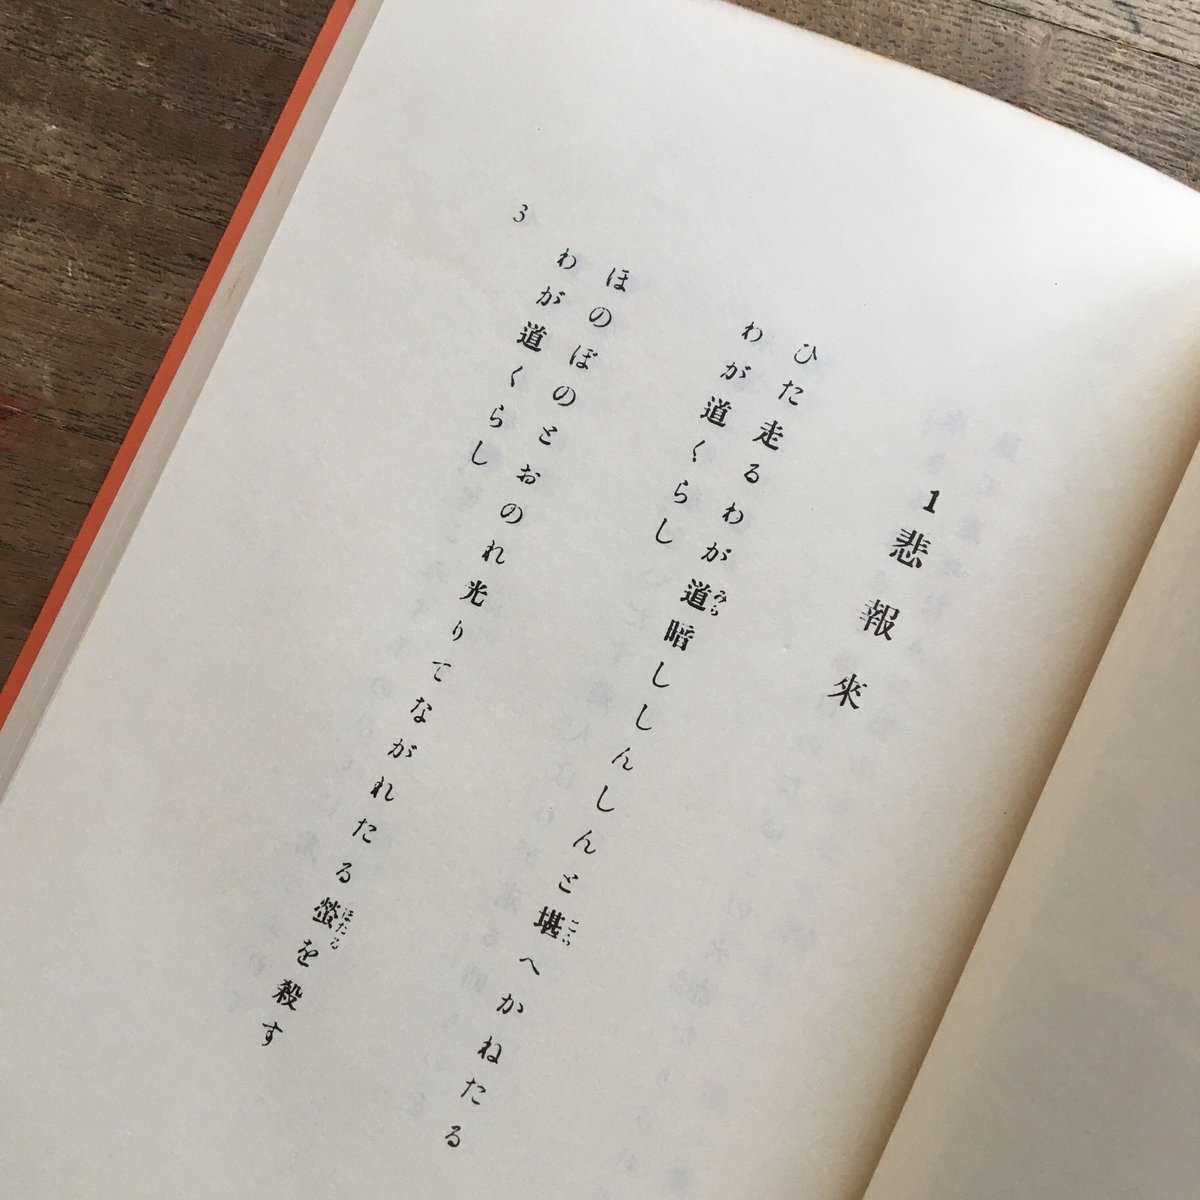 1 悲報來
ひた走るわが道暗ししんしんと堪へかねたる
わが道くらし
ほのぼのとおのれ光りてながれたる螢を殺す
わが道くらし
3